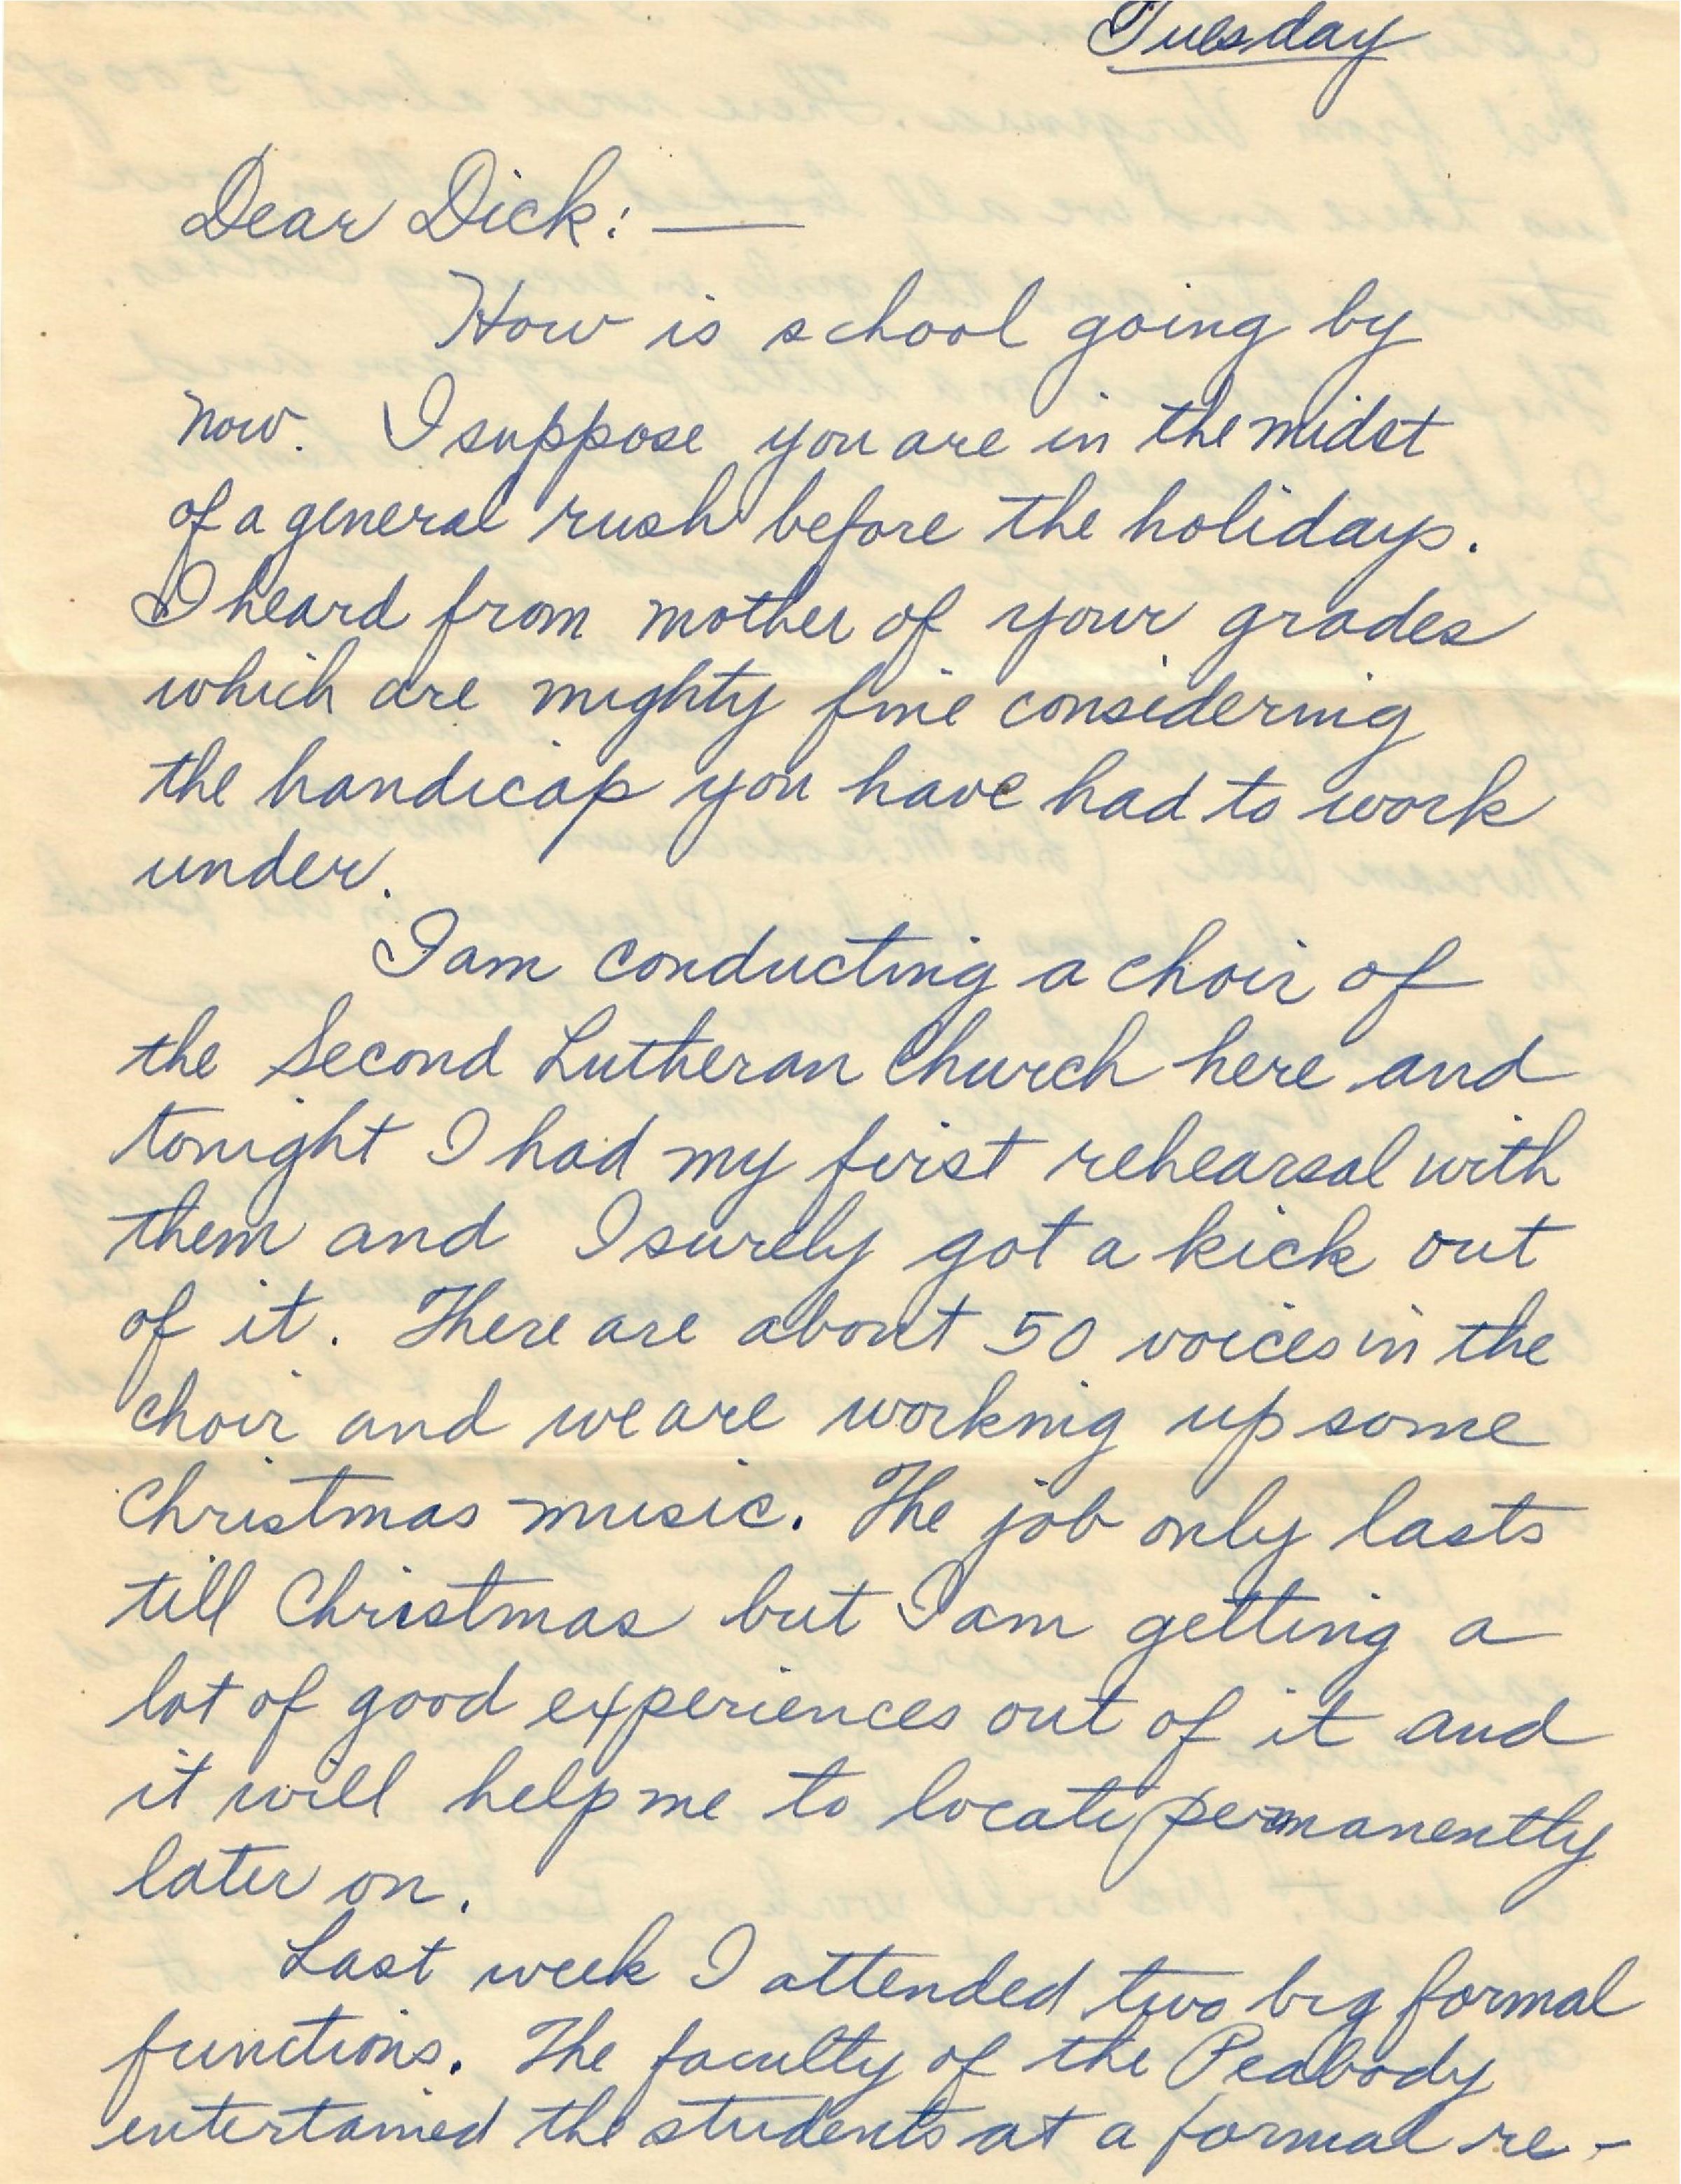 Tuesday
Dear Dick: —
How is school going by
now. I suppose you are in the midst
of a general rush before the holidays.
I heard from mother of your grades
which are mighty fine considering
the handicap you have had to work
under.
I am conducting a choir of
the Second Lutheran Church here and
tonight I had my first rehearsal with
them and I surely got a kick out
of it. There are about 50 voices in the
choir and we are working up some
Christmas music. The job only lasts
till Christmas but I am getting a
lot of good experiences out of it and
it will help me to locate permanently
later on.
Last week I attended two big formal
functions. The faculty of the Peabody
entertained the students at a formal re-